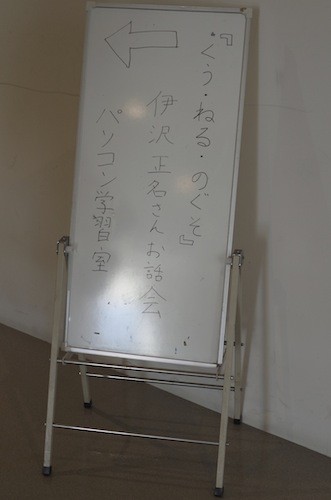 『くう・ねる・のぐそ』
伊沢正名さんお話会
パソコン学習室